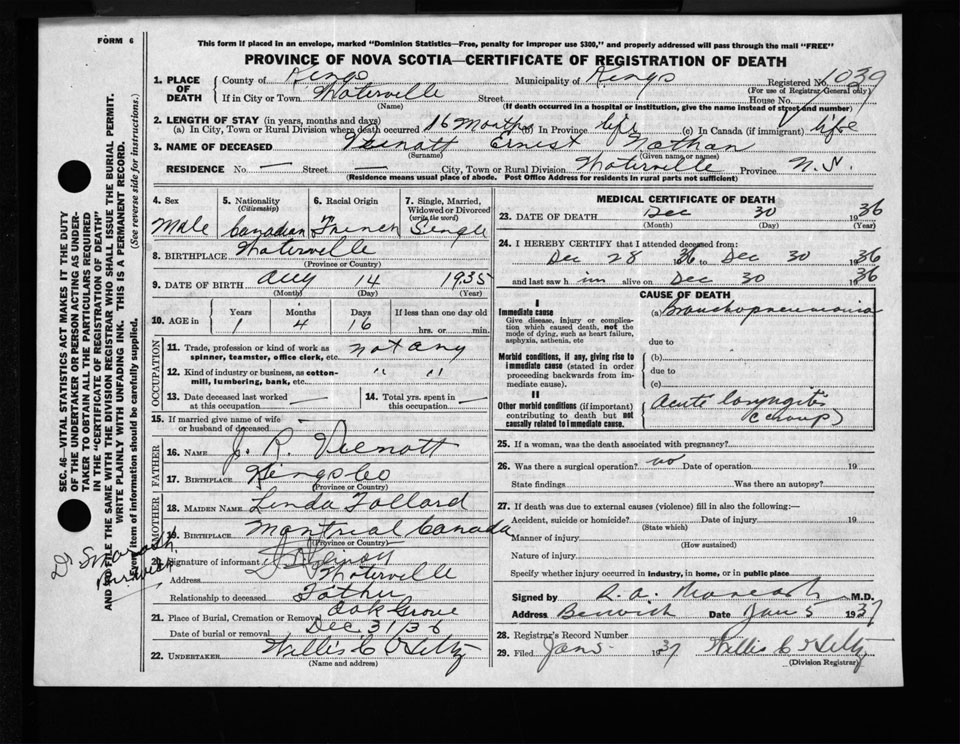 FORM 6
This form if placed in an envelope, marked "Dominion Statistics—Free, penalty for improper use $300," and properly addressed will pass through the mail "FREE"
PROVINCE OF NOVA SCOTIA—CERTIFICATE OF REGISTRATION OF DEATH
1. PLACE OF DEATH County of Kings Municipality of Kings Registered No. 1039
(For use of Registrar General only)
If in City or Town Waterville Street House No.
(Name) (If death occurred in a hospital or institution, give the name instead of street and number)
2. LENGTH OF STAY (in years, months and days)
(a) In City, Town or Rural Division where death occurred 16 Months (b) In Province life (c) In Canada (if immigrant) life
3. NAME OF DECEASED Veinott Ernest Nathan
(Surname) (Given name or names)
RESIDENCE No. — Street — City, Town or Rural Division Waterville Province N.S.
(Residence means usual place of abode. Post Office Address for residents in rural parts not sufficient)
4. Sex 5. Nationality (Citizenship) 6. Racial Origin 7. Single, Married, Widowed or Divorced (write the word)
Male Canadian French Single
8. BIRTHPLACE Waterville
(Province or Country)
9. DATE OF BIRTH Aug 14 1935
(Month) (Day) (Year)
10. AGE in Years Months Days If less than one day old
1 4 16 hrs. or min.
OCCUPATION
11. Trade, profession or kind of work as spinner, teamster, office clerk, etc. not any
12. Kind of industry or business, as cotton-mill, lumbering, bank, etc. " "
13. Date deceased last worked at this occupation — 14. Total yrs. spent in this occupation —
15. If married give name of wife or husband of deceased —
FATHER
16. NAME J. R. Veinott
17. BIRTHPLACE Kings Co
(Province or Country)
MOTHER
18. MAIDEN NAME Linda
19. BIRTHPLACE Montrial Canada
(Province or Country)
20. Signature of informant
Address Waterville
Relationship to deceased Father
21. Place of Burial, Cremation or Removal Oak Grove
Date of burial or removal Dec 31/36
22. UNDERTAKER Willis C
(Name and address)
MEDICAL CERTIFICATE OF DEATH
23. DATE OF DEATH Dec 30 1936
(Month) (Day) (Year)
24. I HEREBY CERTIFY that I attended deceased from:
Dec 28 36 to Dec 30 1936
and last saw him alive on Dec 30 1936
CAUSE OF DEATH
I
Immediate cause (a) Bronchopneumonia
Give disease, injury or complication which caused death, not the mode of dying, such as heart failure, asphyxia, asthenia, etc
due to
Morbid conditions, if any, giving rise to immediate cause (stated in order proceeding backwards from immediate cause).
(b)
due to
(c)
II
Other morbid conditions (if important) contributing to death but not causally related to immediate cause.
Acute laryngitis
(croup)
25. If a woman, was the death associated with pregnancy?
26. Was there a surgical operation? no Date of operation 19
State findings Was there an autopsy?
27. If death was due to external causes (violence) fill in also the following:—
Accident, suicide or homicide? Date of injury 19
(State which)
Manner of injury
(How sustained)
Nature of injury
Specify whether injury occurred in industry, in home, or in public place
Signed by M.D.
Address Berwick Date Jan 5 1937
28. Registrar's Record Number
29. Filed Jan 5 1937 Willis C
(Division Registrar)
SEC. 46—VITAL STATISTICS ACT MAKES IT THE DUTY
OF THE UNDERTAKER OR PERSON ACTING AS UNDER-
TAKER TO OBTAIN ALL THE PARTICULARS REQUIRED
IN THE "CERTIFICATE OF REGISTRATION OF DEATH"
AND TO FILE THE SAME WITH THE DIVISION REGISTRAR WHO SHALL ISSUE THE BURIAL PERMIT.
WRITE PLAINLY WITH UNFADING INK. THIS IS A PERMANENT RECORD.
Every item of information should be carefully supplied. (See reverse side for instructions.)